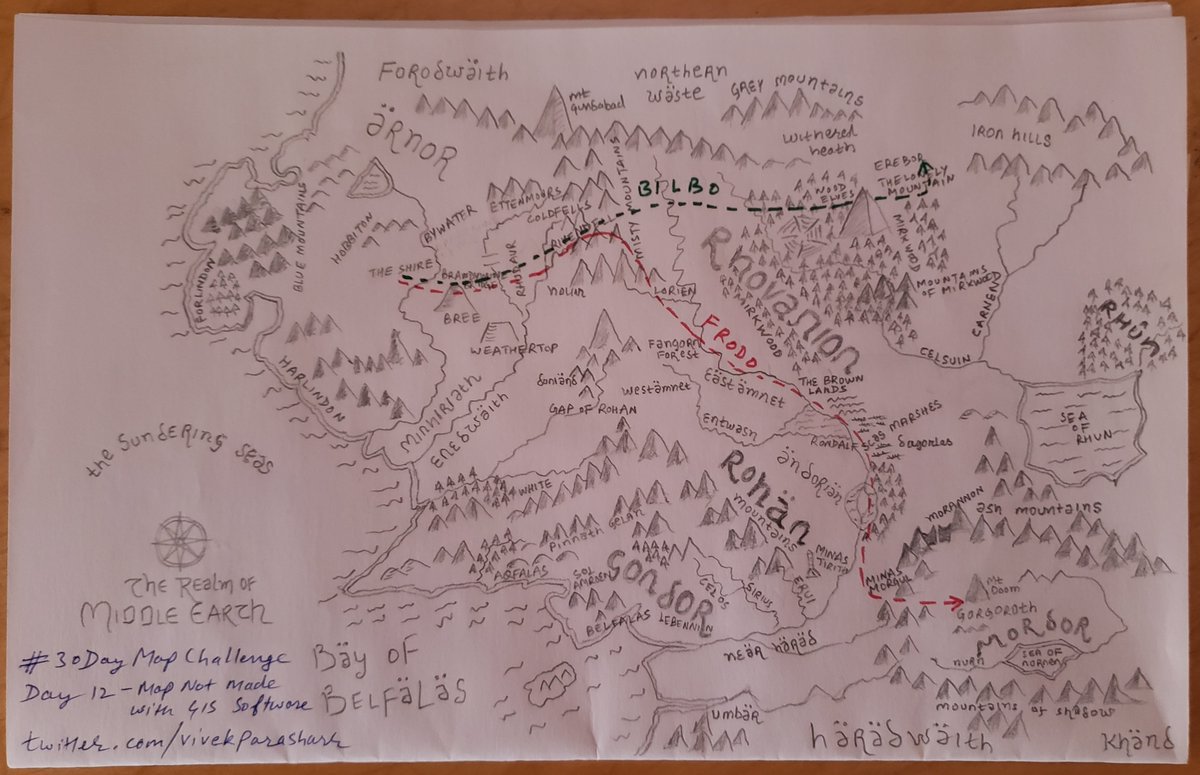 FOROdWäITH
northern
wäste
GREY MOUNTAINS
mt
gundabad
ÄRNOR
withered
heath
IRON HILLS
EREBOR
THE LONELY
MOUNTAIN
MISTY MOUNTAINS
BILBO
WOOD
ELVES
ETTENMOORS
COLDFELLS
RIVENDELL
BLUE MOUNTAINS
HOBBITON
BYWATER
THE SHIRE
BREE
WEATHERTOP
FORLINDON
HARLINDON
LORIEN
MIRKWOOD
Rhovanion
MIRKWOOD
MOUNTAINS
OF MIRKWOOD
CARNEND
CELSUIN
RHÛN
FRODO
FANGORN
FOREST
THE BROWN
LANDS
westämnet
Eästämnet
GAP OF ROHAN
MINHIRIATH
ENEDWÄITH
Entwash
MARSHES
dagorlad
SEA
OF
RHUN
the SUNDERING SEAS
WHITE
Rohän
mountains
MORANNON
ash mountains
Pinnath Gelan
AQFALAS
GONdOR
BELFALAS
LEBENNIN
SIRIUS
MINAS
TIRITH
MINAS
MORGUL
Mt
Doom
GORGOROTH
MORdOR
nurn
SEA OF
NORNEN
neär häräd
mountains of shadow
umbär
häräd wäith
Khänd
The Realm of
MIDDLE EARTH
BäY OF
BELFäLäS
#30Day Map Challenge
Day 12 - Map Not Made
with GIS Software
twitter.com/vivekparashark